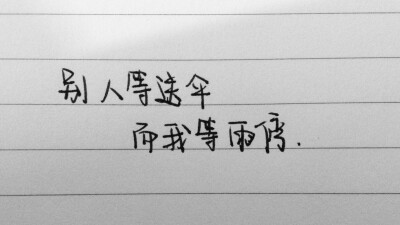 别人等送伞
而我等雨停.